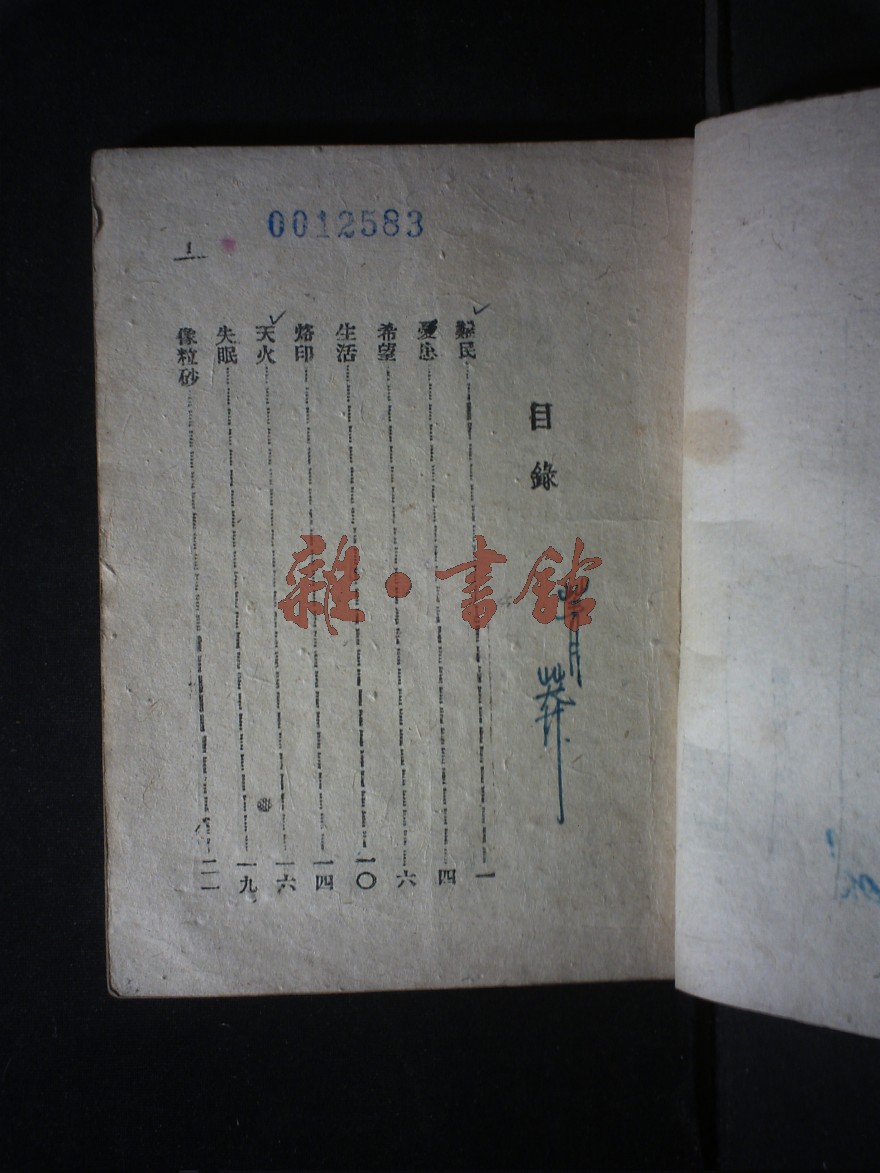 0012583
1
目錄
難民……一
憂患……四
希望……六
生活……一〇
烙印……一四
天火……一六
失眠……一九
像粒砂……二一
雜·書館